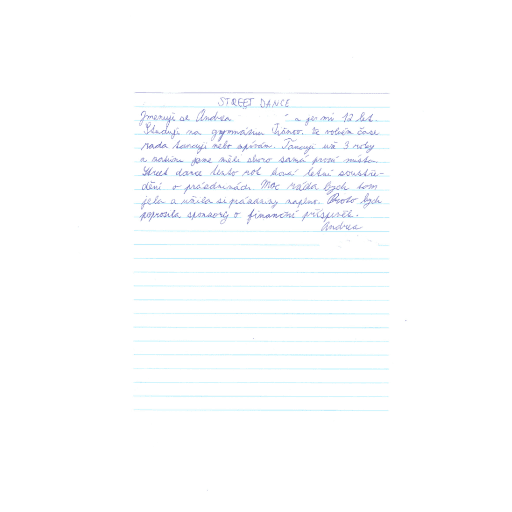 STREET DANCE
Jmenuji se Andrea a je mi 12 let.
Studuji na gymnáziu Ve volném čase
ráda tancuji nebo zpívám. Tancuji už 3 roky
a jsme měli skoro samá první místa.
Street dance tento rok letní soustře-
dění o prázdninách. Moc ráda bych tam
jela a užila si prázdniny naplno. Proto bych
poprosila sponzory o finanční příspěvek.
Andrea